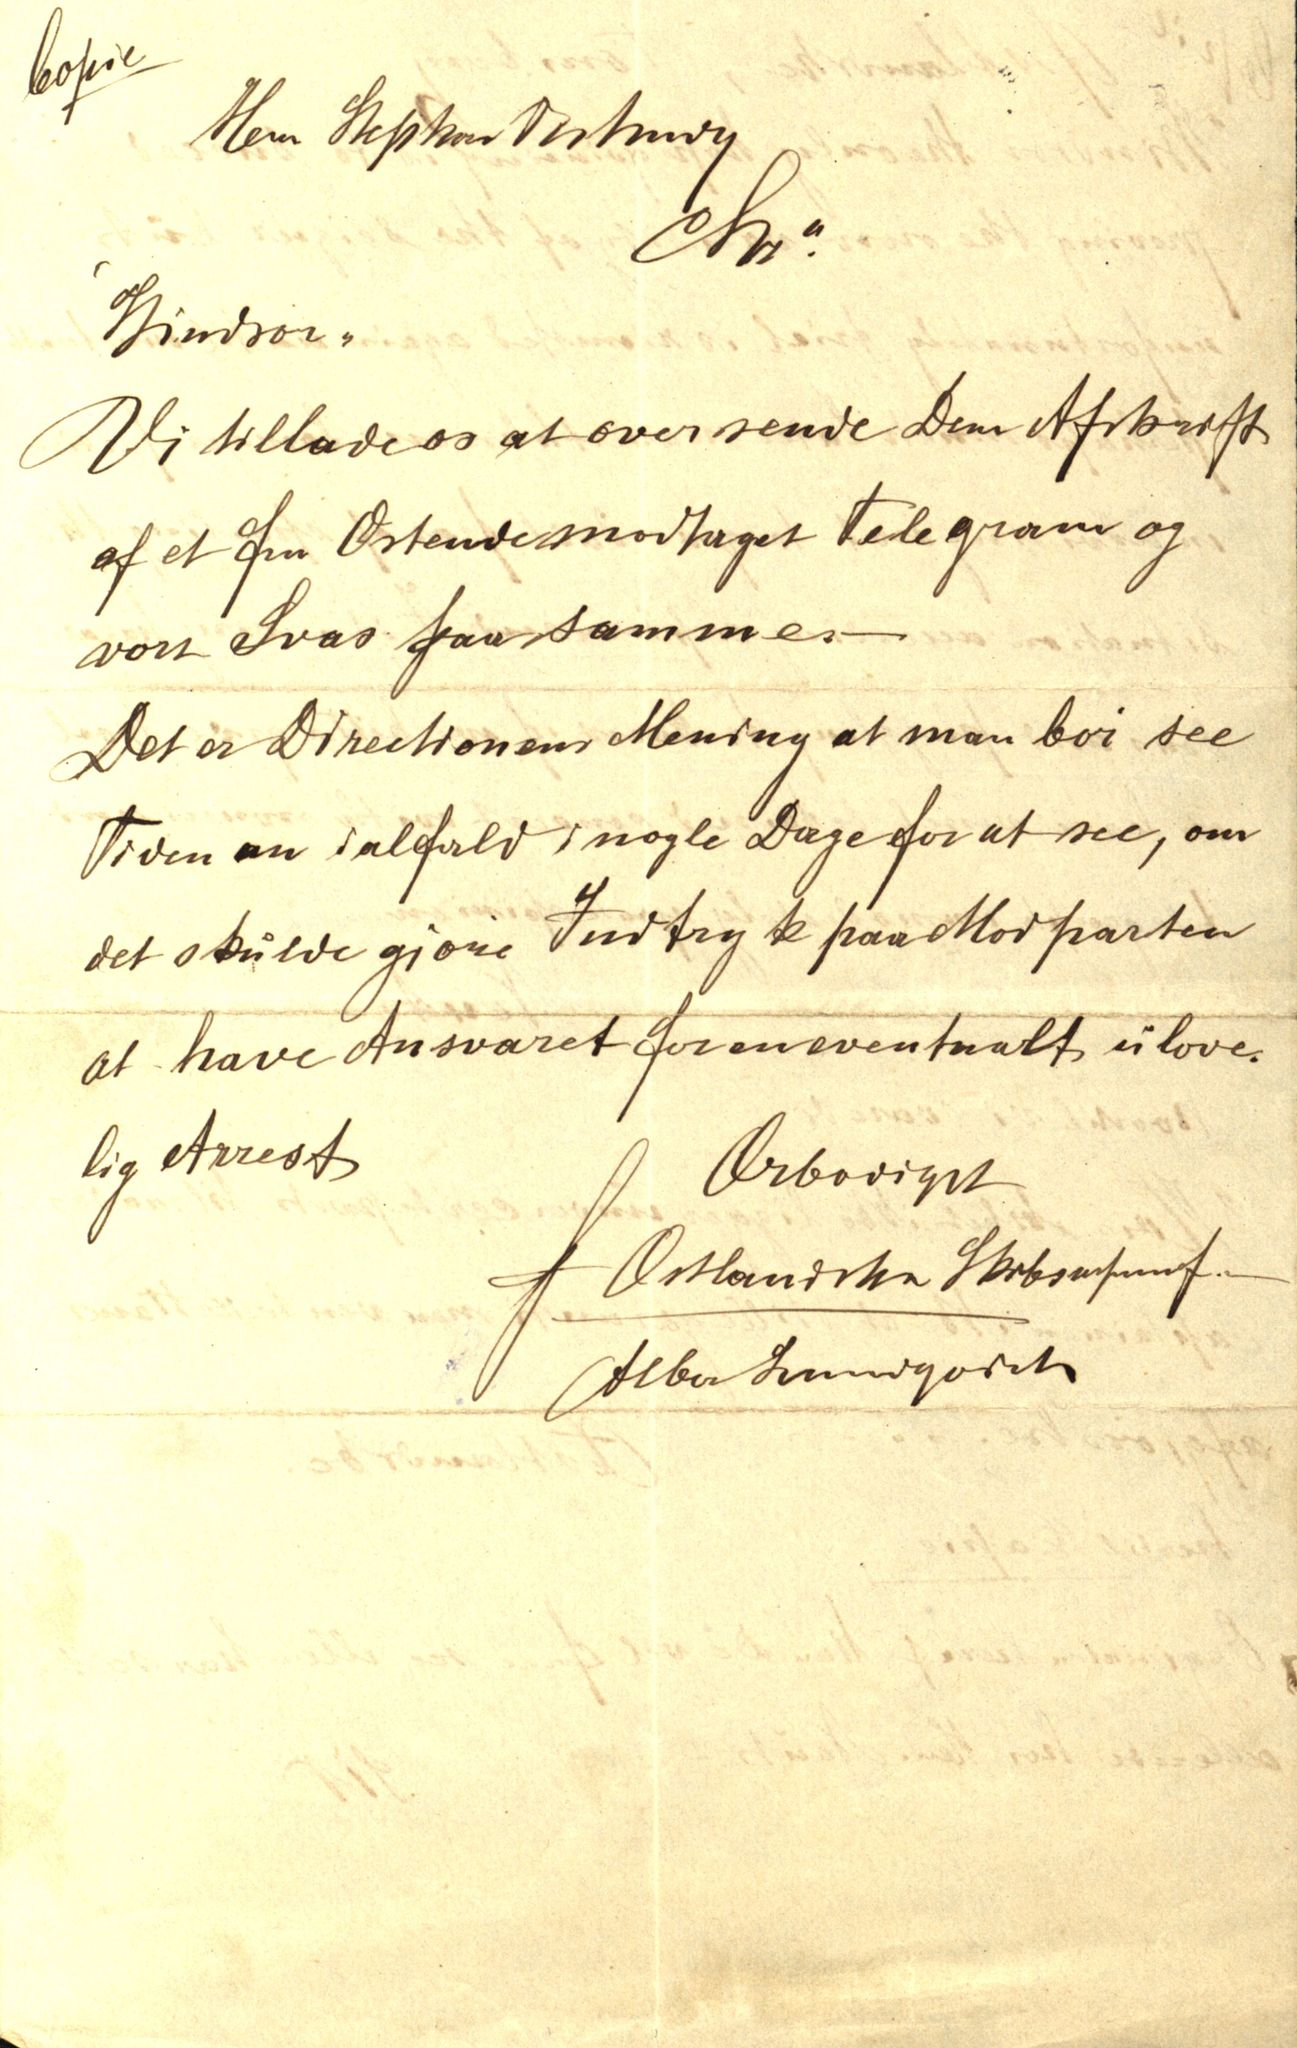 Copie
Herr Stephan
Chr.a
"Windsor"
Vi tillade os at oversende Dem Afskrift
af et fra Ostende modtaget Telegram og
vort Svar paa samme. —
Det er Directionens Mening at man bør see
Tiden an ialfald i nogle Dage for at see, om
det skulde gjøre Indtryk paa Modparten
at have Ansvaret for en eventualt ulove-
lig Arrest
Ærbødigst
f Østlandske Skibsassuranf. —
Alber